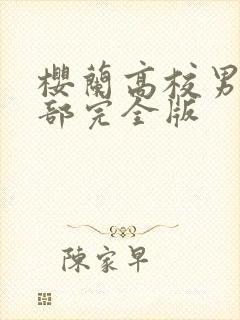 櫻蘭高校男
部完全版
陳家早